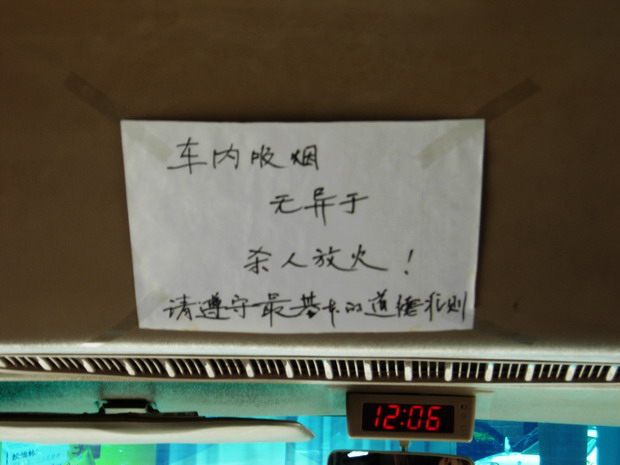 车内吸烟
无异于
杀人放火！
请遵守最基本的道德准则
12:06